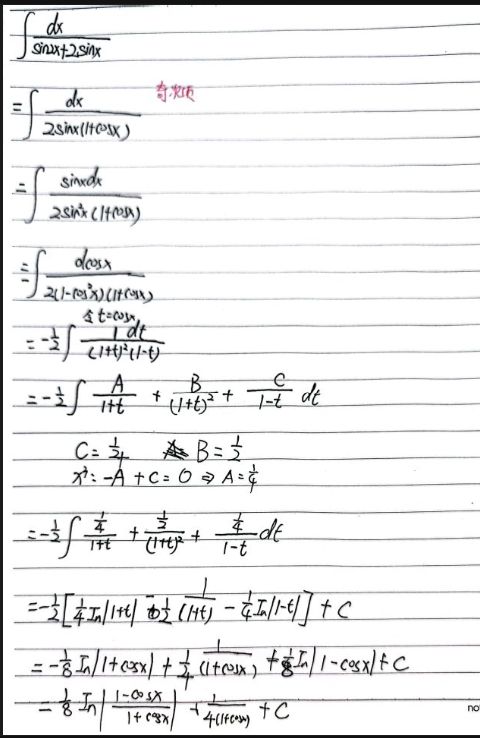 ∫ dx / (sin2x+2sinx)
= ∫ dx / (2sinx(1+cosx)) 奇次项
= ∫ sinxdx / (2sin²x(1+cosx))
= ∫ dcosx / (2(1-cos²x)(1+cosx))
令t=cosx
= -1/2 ∫ 1 dt / ((1+t)²(1-t))
= -1/2 ∫ A/(1+t) + B/(1+t)² + C/(1-t) dt
C = 1/4 B = 1/2
x²: -A + C = 0 ⇒ A = 1/4
= -1/2 ∫ (1/4)/(1+t) + (1/2)/(1+t)² + (1/4)/(1-t) dt
= -1/2 [ 1/4 In|1+t| - 1/2 1/(1+t) - 1/4 In|1-t| ] + C
= -1/8 In|1+cosx| + 1/4 1/(1+cosx) + 1/8 In|1-cosx| + C
= 1/8 In| (1-cosx)/(1+cosx) | + 1/(4(1+cosx)) + C
no